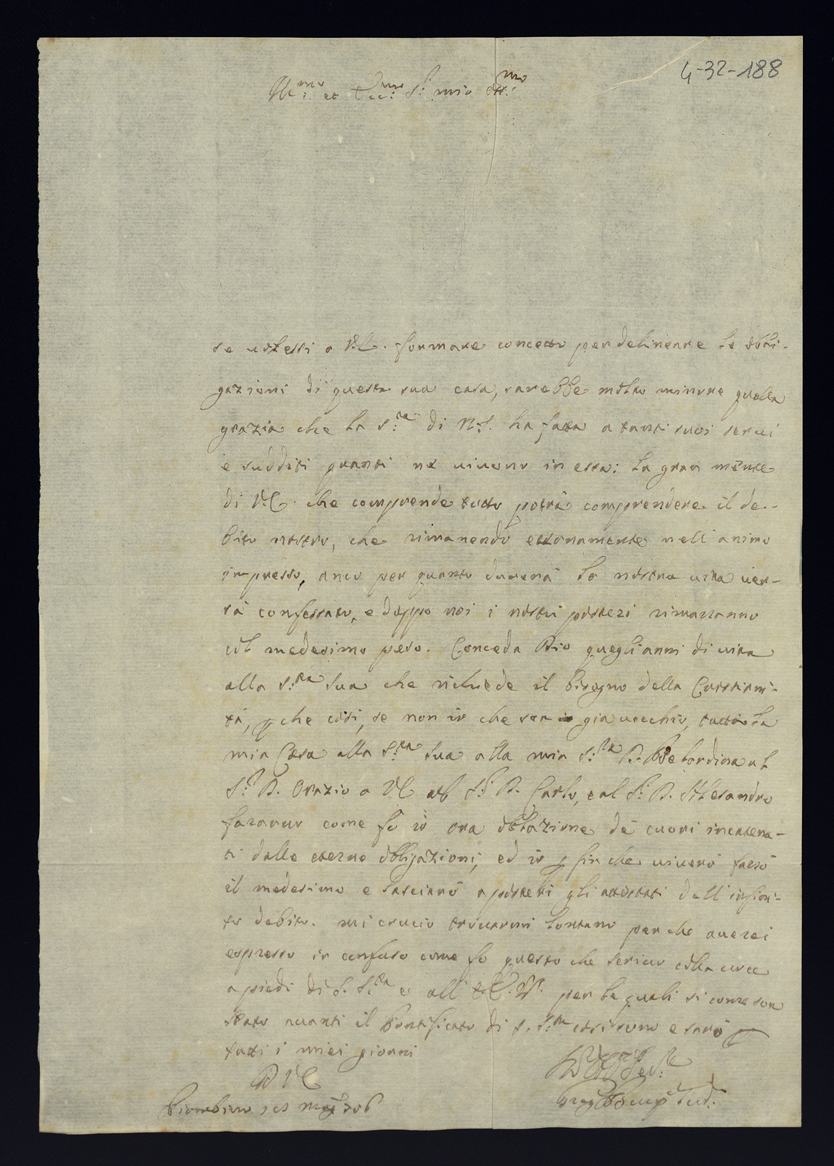 4-32-188
Ill.mo et Ecc.mo S.r mio Oss.mo
se volessi a V.E. formare concetto per delineare le obli-
gazioni di questa sua casa, sarebbe molto minore quella
grazia che la S.tà di N.S. ha fatta a tanti suoi servi
e sudditi quanti ne vivono in essa: la gran mente
di V.E. che comprende tutto potrà comprendere il de-
bito nostro, che rimanendo eternamente nell'animo
impresso, anco per quanto durerà la nostra vita ver-
rà confessato, e doppo noi i nostri posteri rimarranno
col medesimo peso. Conceda Dio quegl'anni di vita
alla S.tà Sua che richiede il bisogno della Cristiani-
tà, che così, se non io che son già vecchio, tutta la
mia Casa alla S.tà Sua alla mia S.ra D. al
S.r D. Orazio a V.E. al S.r D. Carlo, e al S.r D. Alesandro
faranno come fo io ora oblazione de cuori incatena-
ti dalle eterne obligazioni, ed io fin che viverò farò
il medesimo e lasciarò a posteri gli attestati dell'infini-
to debito. mi crucio trovarmi lontano perche averei
espresso in confuso come fo questo che scrivo colla voce
a piedi di S. S.tà e all' E.V. per la quali si come son
stato avanti il Pontificato di S. S.tà così sono e sarò
tutti i miei giorni
D V.E.
Piombino